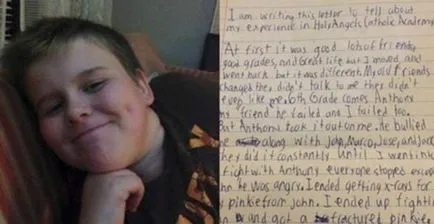 I am writing this letter to tell about
my experience in Holy Angels Catholic Academy
At first it was good lots of friends,
good grades, and Great life but I moved, and
went back but it was different. My old friends
changed they didn't talk to me they didn't
even like me. 6th Grade comes Anthony
my friend he failed and I failed too.
But Anthony took it out on me. He bullied
me along with John, Marco, Jose, and
they did it constantly until I went into
fight with Anthony everyone stoped except
John he was angry. I ended getting x-rays for
pinkie from john. I ended up fighting
and got a fractured pinkie.